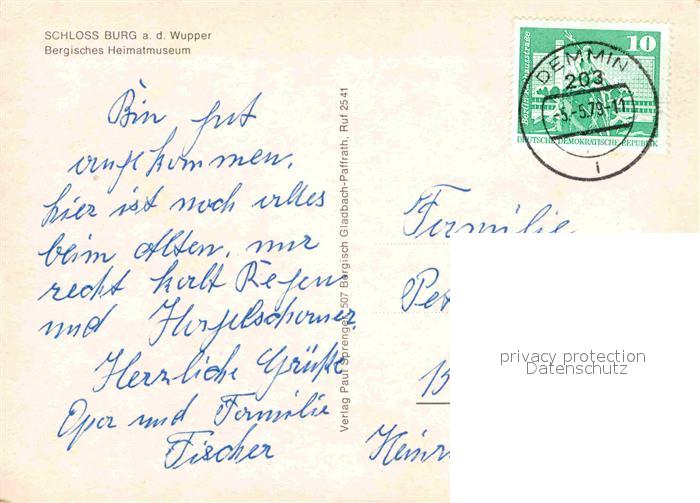 SCHLOSS BURG a. d. Wupper
Bergisches Heimatmuseum
Bin gut
angekommen,
hier ist noch alles
beim Alten, nur
recht kalt Regen
und Hagelschauer.
Herzliche Grüße
Opa und Familie
Fischer
Verlag Paul Sprenger, 507 Bergisch Gladbach-Paffrath, Ruf 25 41
10
DEUTSCHE DEMOKRATISCHE REPUBLIK
DEMMIN
203
-5.-5.79-11
i
Familie
Pet
15
Heinr
privacy protection
Datenschutz